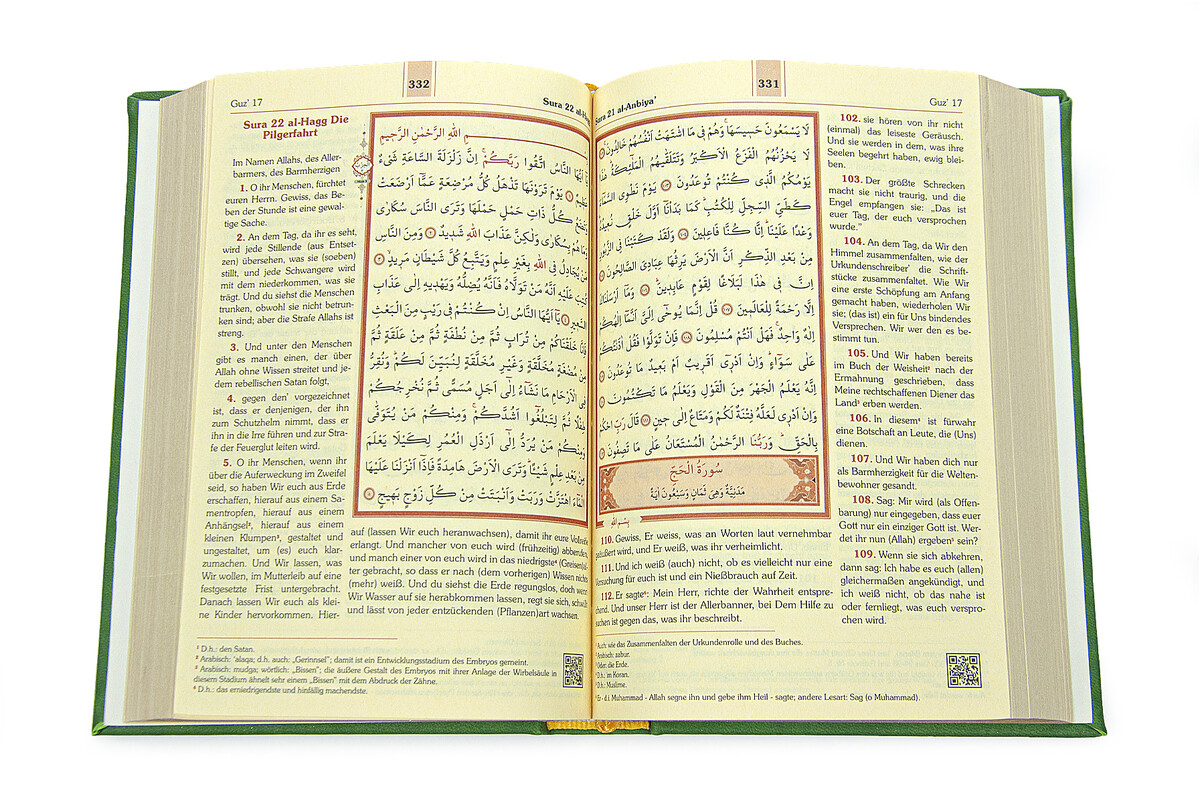 331
Sura 21 al-Anbiya'
Guz' 17
لَا يَسْمَعُونَ حَسِيسَهَا وَهُمْ فِى مَا اشْتَهَتْ اَنْفُسُهُمْ خَالِدُونَ
لَا يَحْزُنُهُمُ الْفَزَعُ الْاَكْبَرُ وَتَتَلَقّٰيهُمُ الْمَلٰٓئِكَةُ هٰذَا
يَوْمُكُمُ الَّذِى كُنْتُمْ تُوعَدُونَ ١٠٣ يَوْمَ نَطْوِى السَّمَٓاءَ
كَطَىِّ السِّجِلِّ لِلْكُتُبِ كَمَا بَدَأْنَٓا اَوَّلَ خَلْقٍ نُعِيدُهُ
وَعْدًا عَلَيْنَا اِنَّا كُنَّا فَاعِلِينَ ١٠٤ وَلَقَدْ كَتَبْنَا فِى الزَّبُورِ
مِنْ بَعْدِ الذِّكْرِ اَنَّ الْاَرْضَ يَرِثُهَا عِبَادِىَ الصَّالِحُونَ
اِنَّ فِى هٰذَا لَبَلَاغًا لِقَوْمٍ عَابِدِينَ ١٠٦ وَمَٓا اَرْسَلْنَاكَ
اِلَّا رَحْمَةً لِلْعَالَمِينَ ١٠٧ قُلْ اِنَّمَا يُوحٰٓى اِلَىَّ اَنَّمَٓا اِلٰهُكُمْ
اِلٰهٌ وَاحِدٌ فَهَلْ اَنْتُمْ مُسْلِمُونَ ١٠٨ فَاِنْ تَوَلَّوْا فَقُلْ اٰذَنْتُكُمْ
عَلٰى سَوَٓاءٍ وَاِنْ اَدْرِٓى اَقَرِيبٌ اَمْ بَعِيدٌ مَا تُوعَدُونَ
اِنَّهُ يَعْلَمُ الْجَهْرَ مِنَ الْقَوْلِ وَيَعْلَمُ مَا تَكْتُمُونَ
وَاِنْ اَدْرِى لَعَلَّهُ فِتْنَةٌ لَكُمْ وَمَتَاعٌ اِلٰى حِينٍ ١١١ قَالَ رَبِّ احْكُمْ
بِالْحَقِّ وَرَبُّنَا الرَّحْمٰنُ الْمُسْتَعَانُ عَلٰى مَا تَصِفُونَ
سُورَةُ الْحَجِّ
مَدَنِيَّةٌ وَهِىَ ثَمَانٍ وَسَبْعُونَ اٰيَةً
بِسْمِ اللهِ
102. sie hören von ihr nicht
(einmal) das leiseste Geräusch.
Und sie werden in dem, was ihre
Seelen begehrt haben, ewig blei-
ben.
103. Der größte Schrecken
macht sie nicht traurig, und die
Engel empfangen sie: „Das ist
euer Tag, der euch versprochen
wurde.”
104. An dem Tag, da Wir den
Himmel zusammenfalten, wie der
Urkundenschreiber¹ die Schrift-
stücke zusammenfaltet. Wie Wir
eine erste Schöpfung am Anfang
gemacht haben, wiederholen Wir
sie; (das ist) ein für Uns bindendes
Versprechen. Wir wer den es be-
stimmt tun.
105. Und Wir haben bereits
im Buch der Weisheit² nach der
Ermahnung geschrieben, dass
Meine rechtschaffenen Diener das
Land³ erben werden.
106. In diesem⁴ ist fürwahr
eine Botschaft an Leute, die (Uns)
dienen.
107. Und Wir haben dich nur
als Barmherzigkeit für die Welten-
bewohner gesandt.
108. Sag: Mir wird (als Offen-
barung) nur eingegeben, dass euer
Gott nur ein einziger Gott ist. Wer-
det ihr nun (Allah) ergeben⁵ sein?
109. Wenn sie sich abkehren,
dann sag: Ich habe es euch (allen)
gleichermaßen angekündigt, und
ich weiß nicht, ob das nahe ist
oder fernliegt, was euch verspro-
chen wird.
110. Gewiss, Er weiss, was an Worten laut vernehmbar
geäußert wird, und Er weiß, was ihr verheimlicht.
111. Und ich weiß (auch) nicht, ob es vielleicht nur eine
Versuchung für euch ist und ein Nießbrauch auf Zeit.
112. Er sagte⁶: Mein Herr, richte der Wahrheit entspre-
chend. Und unser Herr ist der Allerbanner, bei Dem Hilfe zu
suchen ist gegen das, was ihr beschreibt.
Auch: wie das Zusammenfalten der Urkundenrolle und des Buches.
Arabisch: zabur.
Oder: die Erde.
D.h.: im Koran.
D.h.: Muslime.
Er - d.i. Muhammad - Allah segne ihn und gebe ihm Heil - sagte; andere Lesart: Sag (o Muhammad).
332
Guz' 17
Sura 22 al-Hagg
Sura 22 al-Hagg Die
Pilgerfahrt
Im Namen Allahs, des Aller-
barmers, des Barmherzigen
1. O ihr Menschen, fürchtet
euren Herrn. Gewiss, das Be-
ben der Stunde ist eine gewal-
tige Sache.
2. An dem Tag, da ihr es seht,
wird jede Stillende (aus Entset-
zen) übersehen, was sie (soeben)
stillt, und jede Schwangere wird
mit dem niederkommen, was sie
trägt. Und du siehst die Menschen
trunken, obwohl sie nicht betrun-
ken sind; aber die Strafe Allahs ist
streng.
3. Und unter den Menschen
gibt es manch einen, der über
Allah ohne Wissen streitet und je-
dem rebellischen Satan folgt,
4. gegen den¹ vorgezeichnet
ist, dass er denjenigen, der ihn
zum Schutzhelm nimmt, dass er
ihn in die Irre führen und zur Stra-
fe der Feuerglut leiten wird.
5. O ihr Menschen, wenn ihr
über die Auferweckung im Zweifel
seid, so haben Wir euch aus Erde
erschaffen, hierauf aus einem Sa-
mentropfen, hierauf aus einem
Anhängsel², hierauf aus einem
kleinen Klumpen³, gestaltet und
ungestaltet, um (es) euch klar-
zumachen. Und Wir lassen, was
Wir wollen, im Mutterleib auf eine
festgesetzte Frist untergebracht.
Danach lassen Wir euch als klei-
ne Kinder hervorkommen. Hier-
مِ اللهِ الرَّحْمٰنِ الرَّحِيمِ
يَٓا اَيُّهَا النَّاسُ اتَّقُوا رَبَّكُمْ اِنَّ زَلْزَلَةَ السَّاعَةِ شَىْءٌ
عَظِيمٌ ١ يَوْمَ تَرَوْنَهَا تَذْهَلُ كُلُّ مُرْضِعَةٍ عَمَّٓا اَرْضَعَتْ
وَتَضَعُ كُلُّ ذَاتِ حَمْلٍ حَمْلَهَا وَتَرَى النَّاسَ سُكَارٰى
وَمَا هُمْ بِسُكَارٰى وَلٰكِنَّ عَذَابَ اللهِ شَدِيدٌ ٢ وَمِنَ النَّاسِ
مَنْ يُجَادِلُ فِى اللهِ بِغَيْرِ عِلْمٍ وَيَتَّبِعُ كُلَّ شَيْطَانٍ مَرِيدٍ ٣
كُتِبَ عَلَيْهِ اَنَّهُ مَنْ تَوَلَّاهُ فَاَنَّهُ يُضِلُّهُ وَيَهْدِيهِ اِلٰى عَذَابِ
السَّعِيرِ ٤ يَٓا اَيُّهَا النَّاسُ اِنْ كُنْتُمْ فِى رَيْبٍ مِنَ الْبَعْثِ
فَاِنَّا خَلَقْنَاكُمْ مِنْ تُرَابٍ ثُمَّ مِنْ نُطْفَةٍ ثُمَّ مِنْ عَلَقَةٍ ثُمَّ
مِنْ مُضْغَةٍ مُخَلَّقَةٍ وَغَيْرِ مُخَلَّقَةٍ لِنُبَيِّنَ لَكُمْ وَنُقِرُّ
فِى الْاَرْحَامِ مَا نَشَٓاءُ اِلٰٓى اَجَلٍ مُسَمًّى ثُمَّ نُخْرِجُكُمْ
طِفْلًا ثُمَّ لِتَبْلُغُٓوا اَشُدَّكُمْ وَمِنْكُمْ مَنْ يُتَوَفّٰى
وَمِنْكُمْ مَنْ يُرَدُّ اِلٰٓى اَرْذَلِ الْعُمُرِ لِكَيْلَا يَعْلَمَ
مِنْ بَعْدِ عِلْمٍ شَيْئًا وَتَرَى الْاَرْضَ هَامِدَةً فَاِذَٓا اَنْزَلْنَا عَلَيْهَا
الْمَٓاءَ اهْتَزَّتْ وَرَبَتْ وَاَنْبَتَتْ مِنْ كُلِّ زَوْجٍ بَهِيجٍ ٥
auf (lassen Wir euch heranwachsen), damit ihr eure Vollreife
erlangt. Und mancher von euch wird (frühzeitig) abberufen,
und manch einer von euch wird in das niedrigste⁴ (Greisen)al-
ter gebracht, so dass er nach (dem vorherigen) Wissen nichts
(mehr) weiß. Und du siehst die Erde regungslos, doch wenn
Wir Wasser auf sie herabkommen lassen, regt sie sich, schwillt
und lässt von jeder entzückenden (Pflanzen)art wachsen.
D.h.: den Satan.
Arabisch: 'alaqa; d.h. auch: „Gerinnsel”; damit ist ein Entwicklungsstadium des Embryos gemeint.
Arabisch: mudga; wörtlich: „Bissen”; die äußere Gestalt des Embryos mit ihrer Anlage der Wirbelsäule in
diesem Stadium ähnelt sehr einem „Bissen” mit dem Abdruck der Zähne.
D.h.: das erniedrigendste und hinfällig machendste.